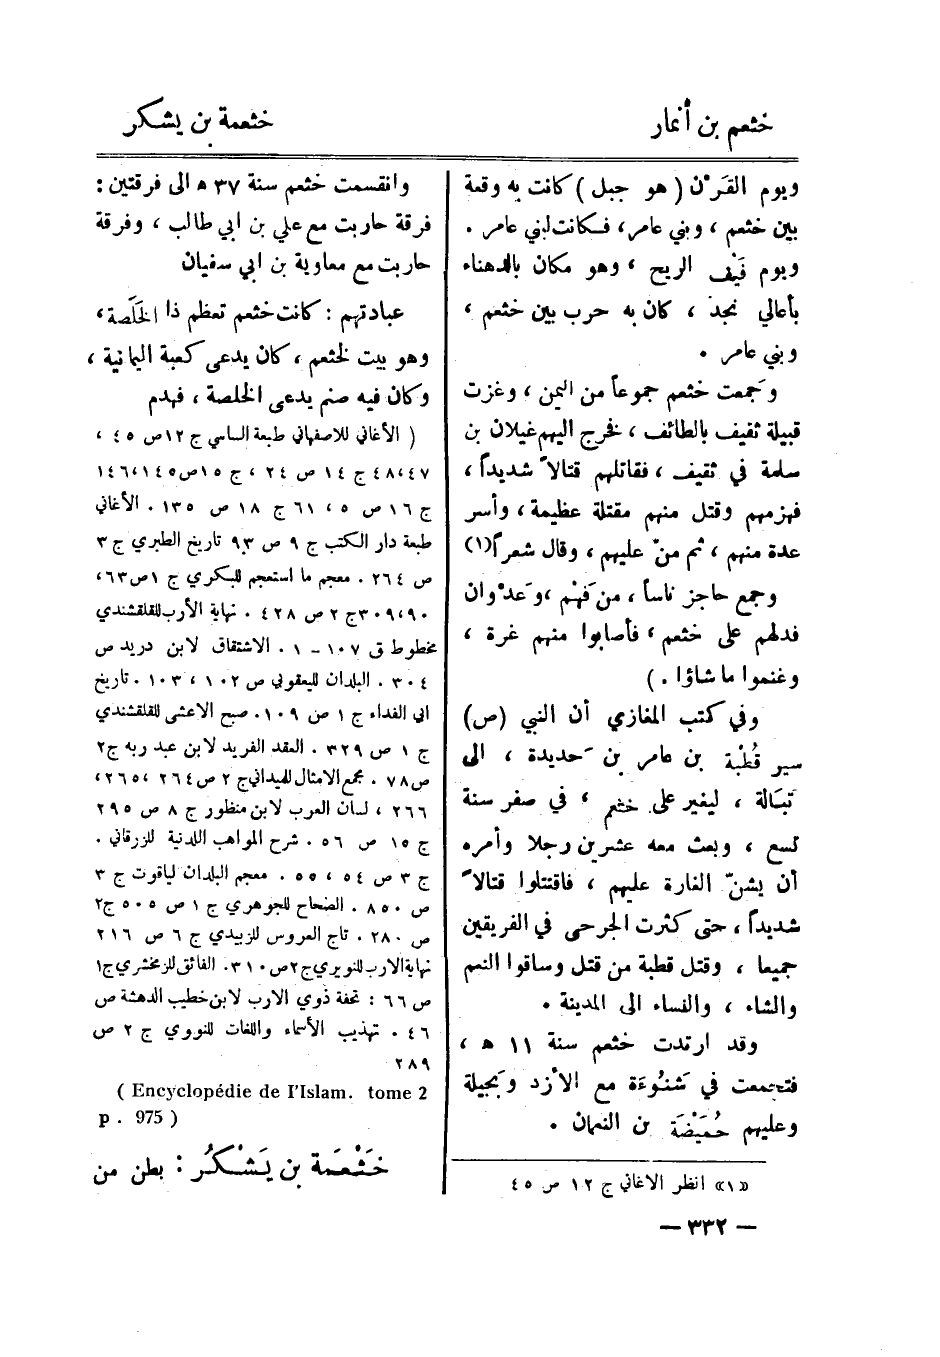 خثعم بن أنمار
خثعمة بن يشكر
ويوم القَرْن ( هو جبل ) كانت به وقعة
بين خثعم ، وبني عامر، فكانت لبني عامر .
ويوم فَيْف الريح ، وهو مكان بالدهناء
بأعالي نجد ، كان به حرب بين خثعم ،
وبني عامر .
وَجمعت خثعم جموعاً من اليمن ، وغزت
قبيلة ثقيف بالطائف ، فخرج اليهم غيلان بن
سلمة في ثقيف ، فقاتلهم قتالاً شديداً ،
فهزمهم وقتل منهم مقتلة عظيمة ، وأسر
عدة منهم ، ثم منّ عليهم ، وقال شعراً(١)
وجمع حاجز ناساً ، من فَهْم ،وعَدْوان
فدلهم على خثعم ، فأصابوا منهم غرة ،
وغنموا ما شاؤا . )
وفي كتب المغازي أن النبي (ص)
سير قُطْبة بن عامر بن حَديدة ، الى
تَبالة ، ليغير على خثعم ، في صفر سنة
تسع ، وبعث معه عشرين رجلا وأمره
أن يشنّ الغارة عليهم ، فاقتتلوا قتالاً
شديداً ، حتى كثرت الجرحى في الفريقين
جميعا ، وقتل قطبة من قتل وساقوا النعم
والشاء ، والنساء الى المدينة .
وقد ارتدت خثعم سنة ١١ هـ ،
فتجمعت في شَنُوءَة مع الأزد وبَجيلة
وعليهم حُمَيْضَة بن النعمان .
«١» انظر الاغاني ج ١٢ ص ٤٥
وانقسمت خثعم سنة ٣٧ هـ الى فرقتين :
فرقة حاربت مع علي بن ابي طالب ، وفرقة
حاربت مع معاوية بن ابي سفيان
عبادتهم : كانت خثعم تعظم ذا الخَلَصة ،
وهو بيت لخثعم ، كان يدعى كعبة اليمانية ،
وكان فيه صنم يدعى الخلصة ، فهدم
( الأغاني للاصفهاني طبعة الساسي ج ١٢ص ٤٥ ،
٤٧،٤٨ ج ١٤ ص ٢٤ ، ج ١٥ص١٤٥،١٤٦
ج ١٦ ص ٥ ، ٦١ ج ١٨ ص ١٣٥ . الأغاني
طبعة دار الكتب ج ٩ ص ٩٣ تاريخ الطبري ج ٣
ص ٢٦٤ . معجم ما استعجم للبكري ج ١ص٦٣،
٣٠٩،٩٠ج ٢ ص ٤٢٨ . نهاية الأرب للقلقشندي
مخطوط ق ١٠٧ – ١ . الاشتقاق لابن دريد ص
٣٠٤ . البلدان لليعقوبي ص ١٠٢ ، ١٠٣ . تاريخ
ابي الفداء ج ١ ص ١٠٩. صبح الاعشى للقلقشندي
ج ١ ص ٣٢٩ . العقد الفريد لابن عبد ربه ج٢
ص٧٨ . مجمع الامثال للميداني ج ٢ ص٢٦٤ ،٢٦٥،
٢٦٦ ، لسان العرب لابن منظور ج ٨ ص ٢٩٥
ج ١٥ ص ٥٦ . شرح المواهب اللدنية للزرقاني .
ج ٣ ص ٥٤ ، ٥٥ . معجم البلدان لياقوت ج ٣
ص ٨٥٠ . الصحاح للجوهري ج ١ ص ٥٠٥ ج٢
ص ٢٨٠ . تاج العروس للزبيدي ج ٦ ص ٢١٦
نهاية الارب للنويري ج٢ص ٣١٠. الفائق للزمخشري ج١
ص ٦٦ : تحفة ذوي الارب لابن خطيب الدهشة ص
٤٦ . تهذيب الأسماء واللغات للنووي ج ٢ ص
٢٨٩
( Encyclopédie de l'Islam. tome 2
p . 975 )
خَثْعَمة بن يَشْكُر : بطن من
— ٣٣٢ —